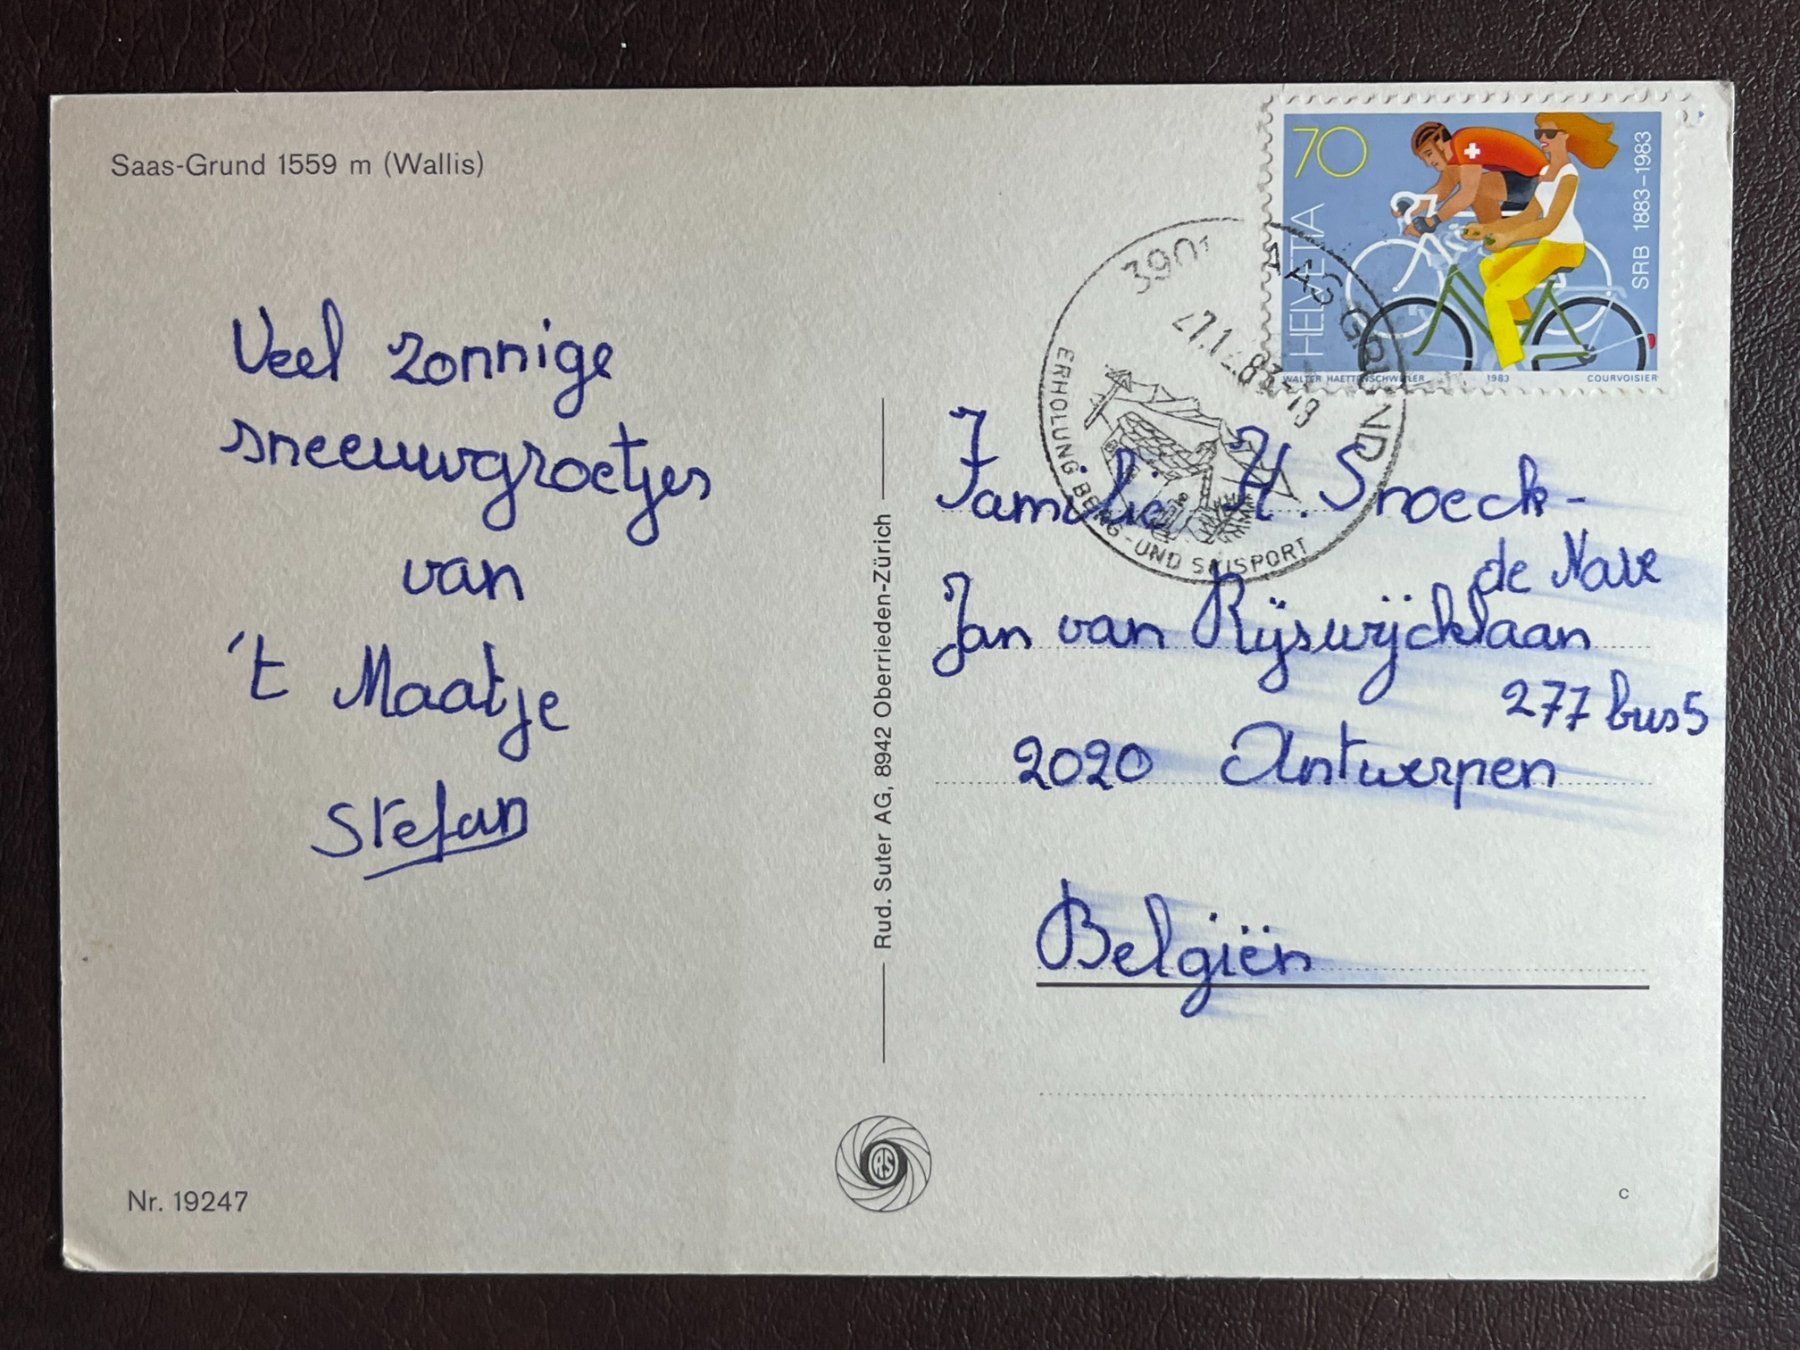 Saas-Grund 1559 m (Wallis)
Veel zonnige
sneeuwgroetjes
van
't Maatje
Stefan
Nr. 19247
Rud. Suter AG, 8942 Oberrieden-Zürich
RS
70
HELVETIA
SRB 1883–1983
WALTER HAETTENSCHWEILER 1983 COURVOISIER
3901 SAAS GRUND
ERHOLUNG BERG-UND SKISPORT
Familie H. Snoeck-
de Nave
Jan van Rijswijcklaan
277 bus 5
2020 Antwerpen
Belgiën
c